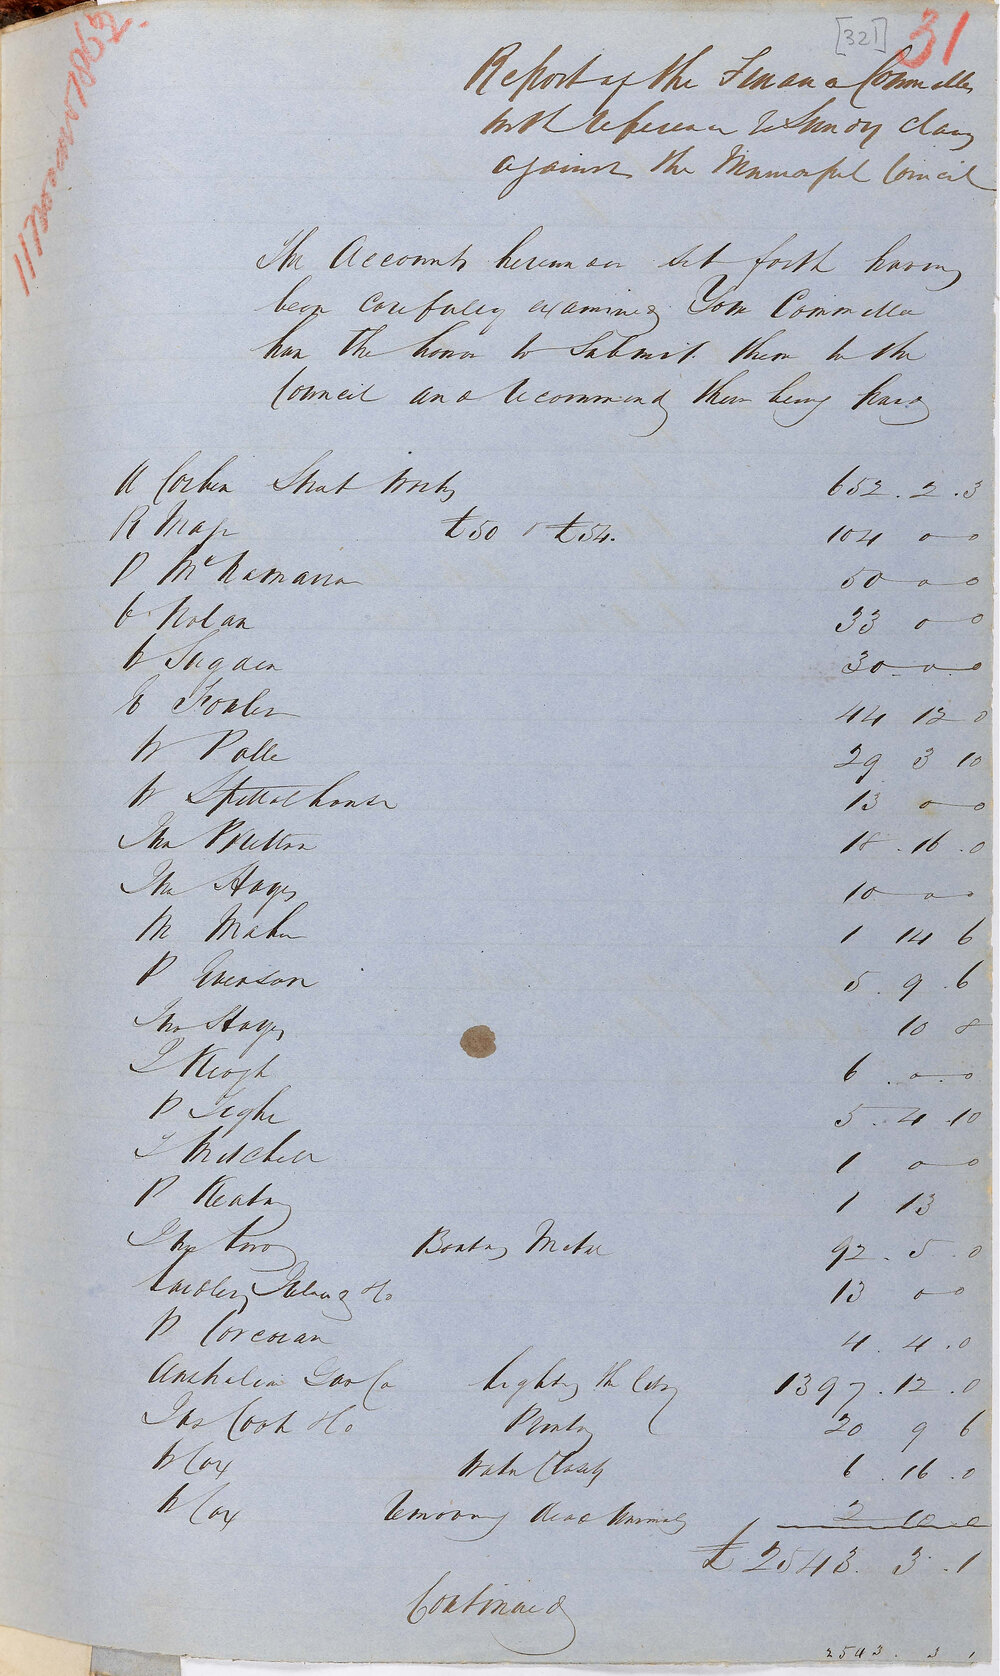 [321] 31
11 November 1862.
Report of the Finance Committee
with reference to Sundry claims
against the Municipal Council
The Accounts hereunder set forth having
been carefully examined Your Committee
has the honor to Submit them to the
Council and recommend their being paid
Corben Street Works 652 . 2 . 3
R £50 £54. 104 0 0
P McNamara 50 0 0
Nolan 33 0 0
W Sugden 30 0 0
E Fowler 44 12 0
W 29 3 10
W Spittlehouse 13 0 0
Thos 18 . 16 . 0
Thos Hayes 10 0 0
M Maher 1 14 6
P Evenson 5 . 9 . 6
Thos Hayes 10 8
Keogh 6 . 0 . 0
P Tighe 5 . 4 . 10
Mitchell 1 0 0
P Keating 1 13
Boating Metal 92 . 5 . 0
13 0 0
P Corcoran 4 . 4 . 0
Australian Gas Co Lighting the City 1397 . 12 . 0
Cook & Co Printing 20 9 6
W Cox Water Closets 6 . 16 . 0
W Cox Removing dead Animals 2 10 0
£ 2543 . 3 . 1
Continued
2543 . 3 1